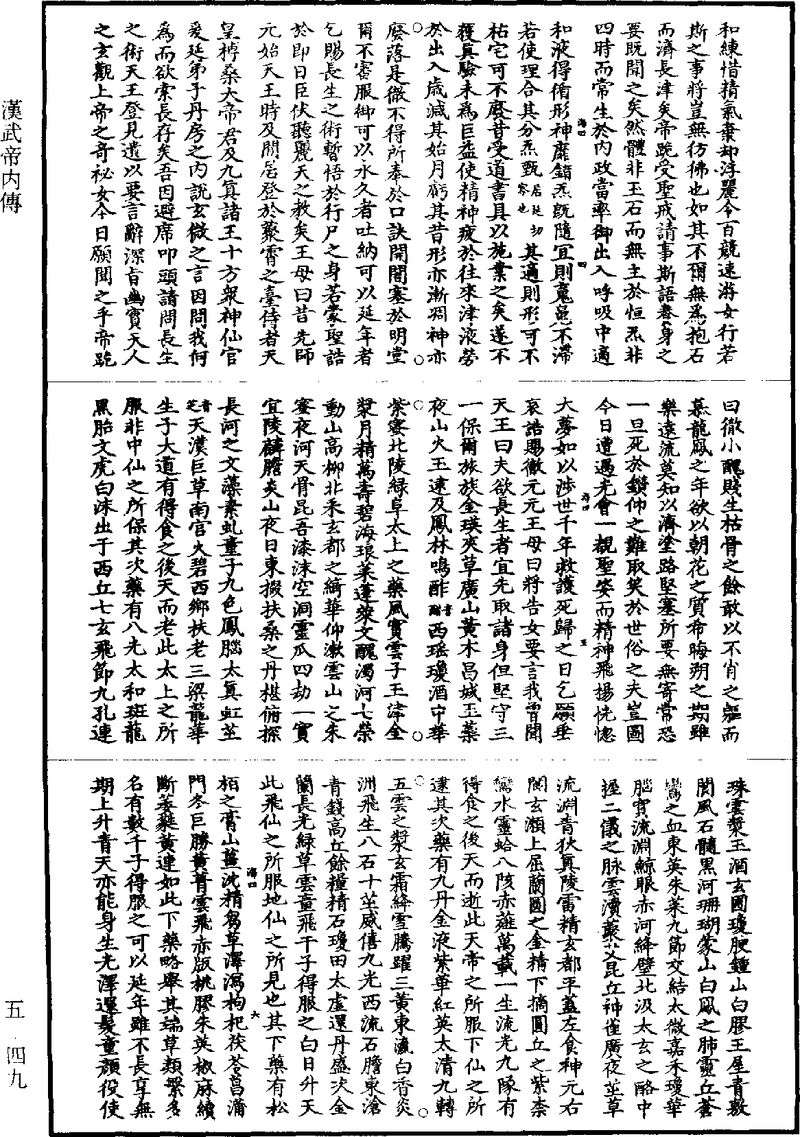 漢武帝內傳
五·四九
和練惜精氣棄却浮麗令百競速游女行若
斯之事將豈無彷彿也如其不爾無為抱石
而濟長津矣帝跪受聖戒請事斯語養身之
要既聞之矣然體非玉石而無主於恒炁非
四時而常生於內政當率御出入呼吸中適
和液得修形神靡錯炁既隨宜則䰟䰟不滯
若使理合其分炁甄居延切察也其適則形可不
枯宅可不廢昔受道書具以施業之矣遂不
獲真驗未為巨益使精神疲於往來津液勞
於出入歲減其始月虧其昔形亦漸凋神亦
廢落是徹不得所奉於口訣開闇塞於明堂
爾不審服御可以永久者吐納可以延年者
乞賜長生之術暫悟於行尸之身若蒙聖誥
於即日臣伏聽麗天之教矣王母曰昔先師
元始天王時及閒居登於藂霄之臺侍者天
皇摶桑大帝君及九真諸王十方衆神仙官
爰延弟子丹房之內說玄微之言因問我何
為而欲索長存矣吾因避席叩頭請問長生
之術天王登見遺以要言辭深旨幽實天人
之玄觀上帝之奇祕女今日願聞之乎帝跪
曰徹小醜賤生枯骨之餘敢以不肖之軀而
慕龍鳳之年欲以朝花之質希晦朔之期雖
樂遠流莫知以濟塗路堅塞所要無寄常恐
一旦死於鑽仰之難取笑於世俗之夫豈圖
今日遭遇光會一覩聖姿而精神飛揚恍惚
大夢如以涉世千年救護死歸之日乞願垂
哀誥賜徹元元王母曰將告女要言我曾聞
天王曰夫欲長生者宜先取諸身但堅守三
一保爾旅族金瑛夾草廣山黃木昌城玉蘂
夜山火玉逮及鳳林鳴酢西瑤瓊酒中華
紫蜜北陵綠阜太上之藥風實雲子玉津金
漿月精萬壽碧海琅菜蓬萊文醜濁河七榮
動山高柳北采玄都之綺華仰漱雲山之朱
蜜夜河天骨昆吾漆沫空洞靈瓜四劫一實
宜陵麟膽炎山夜日東掇扶桑之丹椹俯探
長河之文藻素虬童子九色鳳腦太真虹芝
天漢巨草南宮火碧西鄉扶老三梁龍華
生子大道有得食之後天而老此太上之所
服非中仙之所保其次藥有八光太和斑龍
黑胎文虎白沫出于西丘七玄飛節九孔連
珠雲漿玉酒玄圃瓊腴鍾山白膠王屋青敷
閬風石髓黑河珊瑚蒙山白鳳之肺靈丘蒼
鸞之血東英朱菜九節交結太微嘉禾瓊華
腦實流淵鯨眼赤河絳璧北汲太玄之酪中
握二儀之脉雲瀆藂艾昆丘神雀廣夜茎草
流淵青狄真陵雷精玄都平蓋左食神元右
閡玄瀨上屈蘭園之金精下摘圓丘之紫柰
鸞水靈蛤八陔赤薤萬載一生流光九隊有
得食之後天而逝此天帝之所服下仙之所
逮其次藥有九丹金液紫華紅英太清九轉
五雲之漿玄霜絳雪騰躍三黃東瀛白香炎
洲飛生八石十芝威僖九光西流石膽東滄
青錢高丘餘糧精石瓊田太虛還丹盛次金
蘭長光綠草雲童飛千子得服之白日升天
此飛仙之所服地仙之所見也其下藥有松
柏之膏山薑沈精芻草澤瀉枸杞茯苓菖蒲
門冬巨勝黃菁雲飛赤版桃膠朱英椒麻續
斷葳蕤黃連如此下藥略舉其端草類繁多
名有數千子得服之可以延年雖不長享無
期上升青天亦能身生光澤還髮童顏役使